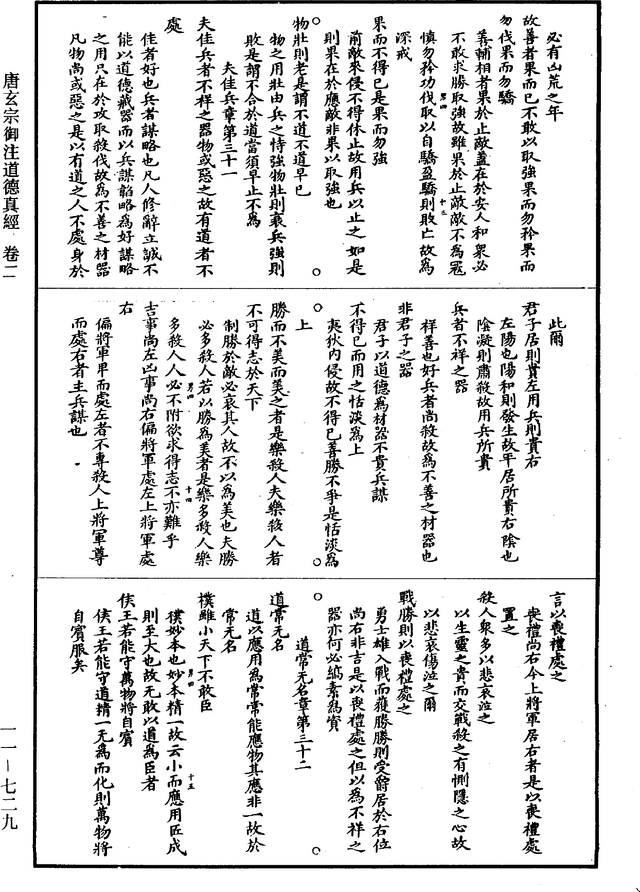 必有凶荒之年
故善者果而已不敢以取強果而勿矜果而
勿伐果而勿驕
善輔相者果於止敵蓋在於安人和衆必
不敢求勝取強故雖果於止敵敵不為寇
慎勿矜功伐取以自驕盈驕則敗亡故為
深戒
果而不得已是果而勿強
前敵來侵不得休止故用兵以止之如是
則果在於應敵非果以取強也
物壯則老是謂不道不道早已
物之用壯由兵之恃強物壯則衰兵強則
敗是謂不合於道當須早止不為
夫佳兵章第三十一
夫佳兵者不祥之器物或惡之故有道者不
處
佳者好也兵者謀略也凡人修辭立誠不
能以道德藏器而以兵謀韜略為好謀略
之用只在於攻取殺伐故為不善之材器
凡物尚或惡之是以有道之人不處身於
唐玄宗御注道德真經 卷二
此爾
君子居則貴左用兵則貴右
左陽也陽和則發生故平居所貴右陰也
陰凝則肅殺故用兵所貴
兵者不祥之器
祥善也好兵者尚殺故為不善之材器也
非君子之器
君子以道德為材器不貴兵謀
不得已而用之恬淡為上
夷狄內侵故不得已善勝不爭是恬淡為
上
勝而不美而美之者是樂殺人夫樂殺人者
不可得志於天下
制勝於敵必哀其人故不以為美也夫勝
必多殺人若以勝為美者是樂多殺人樂
多殺人人必不附欲求得志不亦難乎
吉事尚左凶事尚右偏將軍處左上將軍處
右
偏將軍卑而處左者不專殺人上將軍尊
而處右者主兵謀也
言以喪禮處之
喪禮尚右今上將軍居右者是以喪禮處
置之
殺人衆多以悲哀泣之
以生靈之貴而交戰殺之有惻隱之心故
以悲哀傷泣之爾
戰勝則以喪禮處之
勇士雄入戰而獲勝勝則受爵居於右位
尚右非吉是以喪禮處之但以為不祥之
器亦何必縞素為資
道常无名章第三十二
道常无名
道以應用為常常能應物其應非一故於
常无名
樸雖小天下不敢臣
樸妙本也妙本精一故云小而應用匠成
則至大也故无敢以道為臣者
侯王若能守萬物將自賓
侯王若能守道精一无為而化則萬物將
自賓服矣
一一－七二九